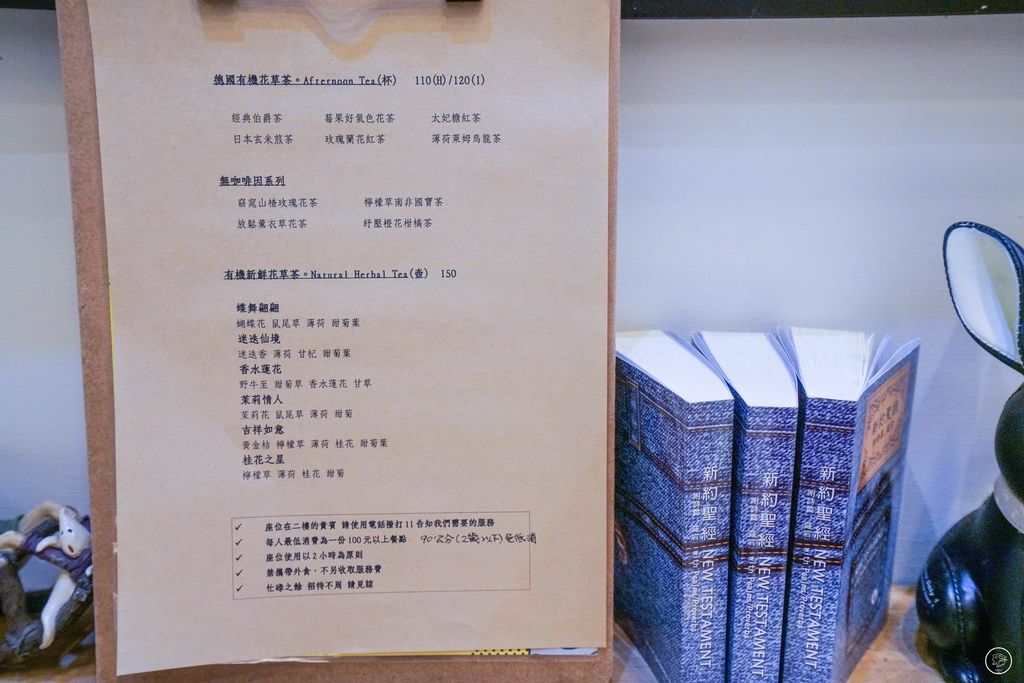 德國有機花草茶。Afternoon Tea(杯) 110(H)/120(I)
經典伯爵茶 莓果好氣色花茶 太妃糖紅茶
日本玄米煎茶 玫瑰蘭花紅茶 薄荷萊姆烏龍茶
無咖啡因系列
窈窕山楂玫瑰花茶 檸檬草南非國寶茶
放鬆薰衣草花茶 紓壓橙花柑橘茶
有機新鮮花草茶。Natural Herbal Tea(壺) 150
蝶舞翩翩
蝴蝶花 鼠尾草 薄荷 甜菊葉
迷迭仙境
迷迭香 薄荷 甘杞 甜菊葉
香水蓮花
野牛至 甜菊草 香水蓮花 甘草
茉莉情人
茉莉花 鼠尾草 薄荷 甜菊
吉祥如意
黃金桔 檸檬草 薄荷 桂花 甜菊葉
桂花之星
檸檬草 薄荷 桂花 甜菊
✓ 座位在二樓的貴賓 請使用電話撥打11告知我們需要的服務
✓ 每人最低消費為一份100元以上餐點. 90公分(2歲以下)免低消
✓ 座位使用以2小時為原則
✓ 禁攜帶外食,不另收取服務費
✓ 忙碌之餘 招待不周 請見諒
新約聖經 NEW TESTAMENT
附詩篇 箴言 with Psalms/Proverbs
新約聖經 NEW TESTAMENT
附詩篇 箴言 with Psalms/Proverbs
新約聖經 NEW TESTAMENT
附詩篇 箴言 with Psalms/Proverbs